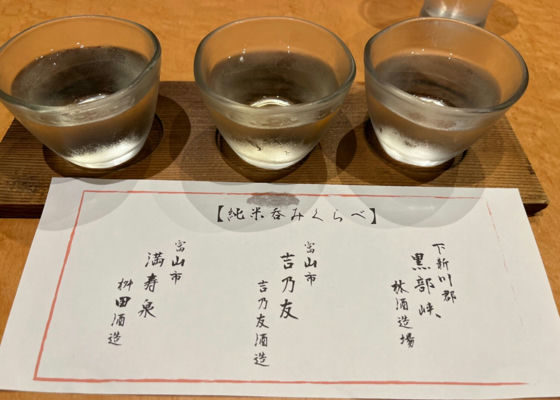 【純米呑みくらべ】
下新川郡
黒部峡
林酒造場
富山市
吉乃友
吉乃友酒造
富山市
満寿泉
桝田酒造